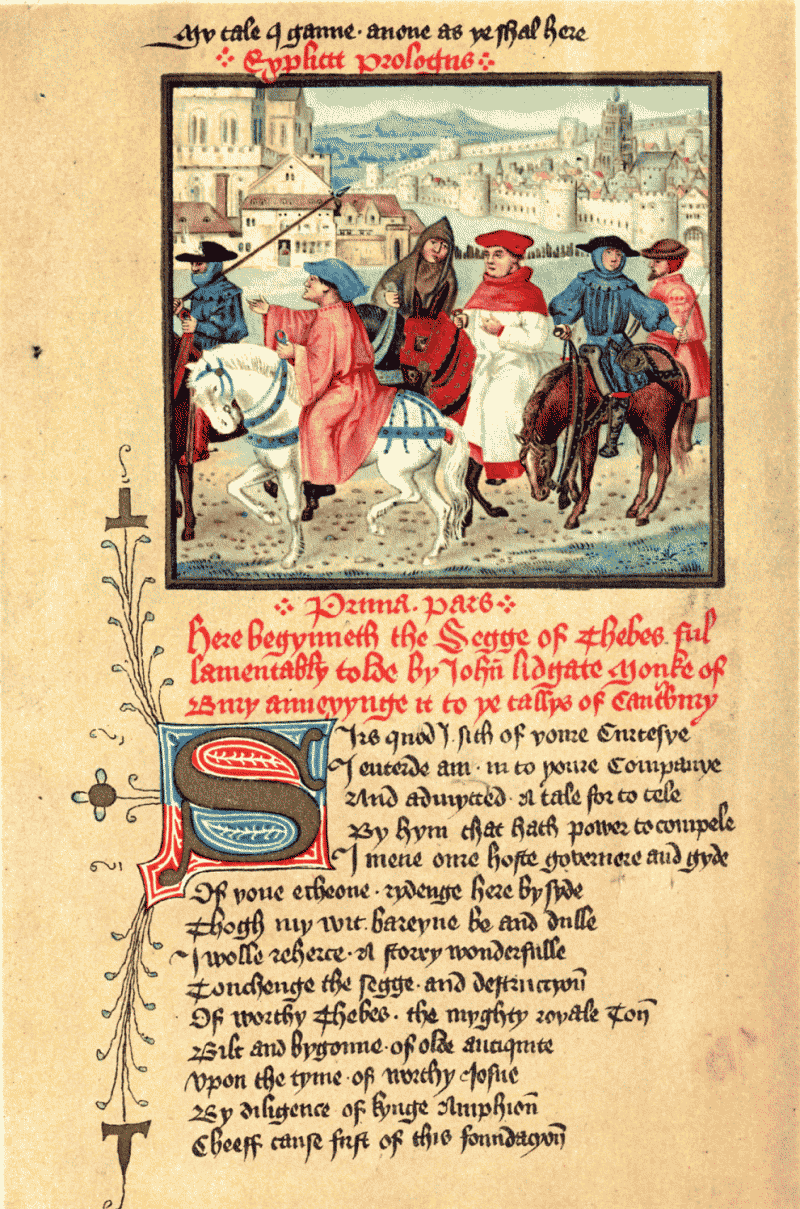 My tale I ganne · anone as ye shal here
Explicit prologus
Prima · pars
Here begynneth the Segge of Thebes ful
lamentably tolde by John lidgate Monke of
Bury anneyynge it to ye tallys of Cantbury
Sirs quod I sith of youre Curtesye
I enterde am · in to youre Companye
And admytted · a tale for to tele
By hym that hath power to compele
I mene oure hoste governere and gyde
Of youe echeone · rydenge here by syde
Thogh my wit bareyne be and dulle
I wolle reherce · a storry wonderfulle
Touchenge the segge · and destruccyoun
Of worthy Thebes · the myghty royale Toun
Bilt and bygonne · of olde antiquite
Vpon the tyme · of worthy Josue
By diligence of kynge Amphioun
Cheeff cause first of this foundacyoun